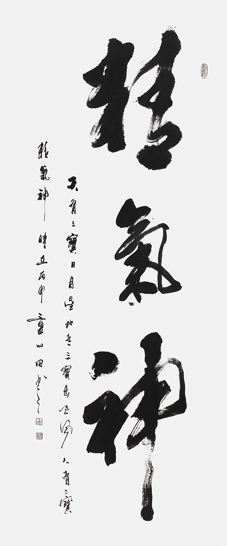 精氣神
天有三寶日月星地有三寶水火風人有三寶
精氣神 時在丙申